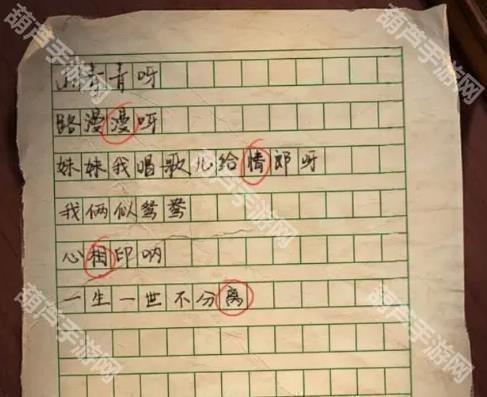 山青青呀
路漫漫呀
妹妹我唱歌儿给情郎呀
我俩似鸳鸯
心相印呐
一生一世不分离
葫芦手游网
葫芦手游网
葫芦手游网
葫芦手游网
葫芦手游网